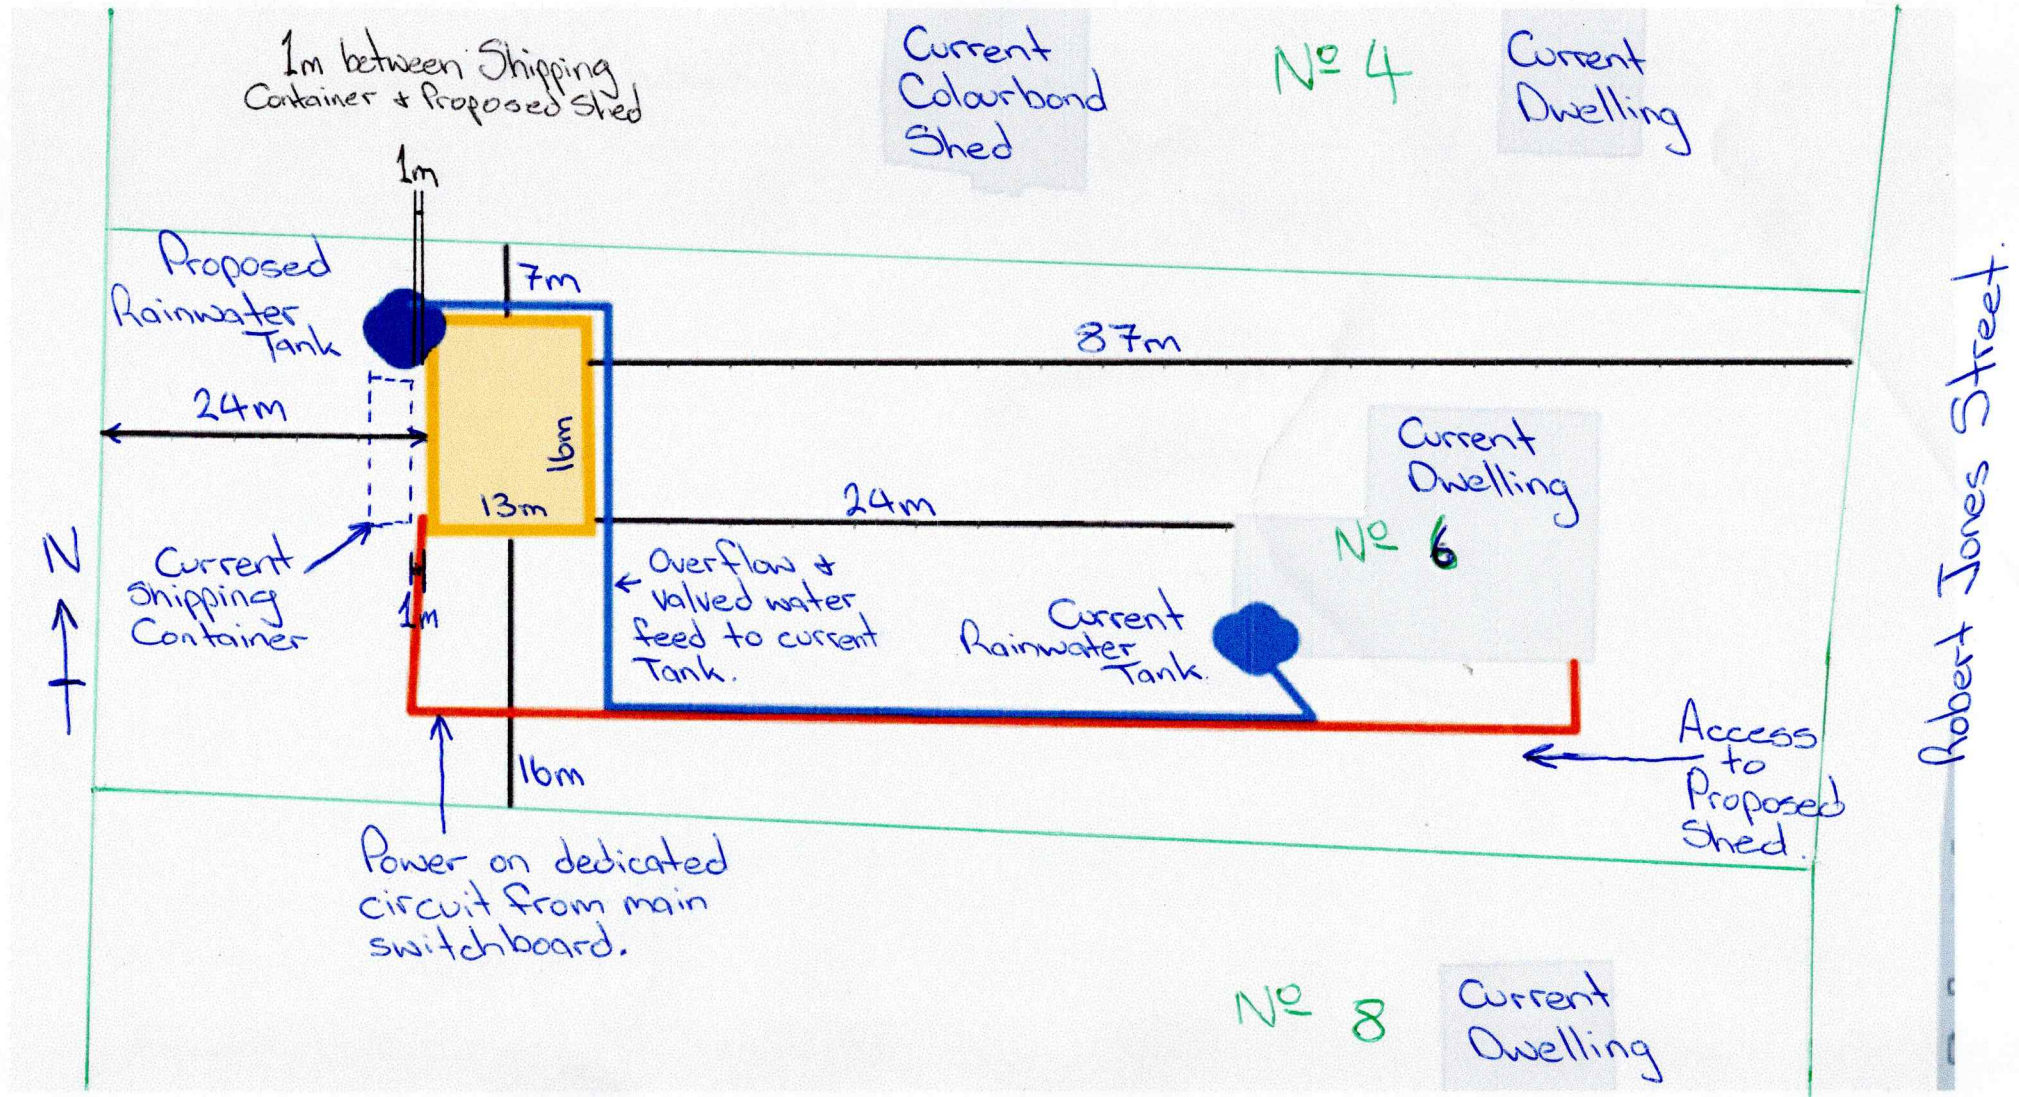 1m between Shipping
Container & Proposed Shed
1m
Current
Colourbond
Shed
Nº 4
Current
Dwelling
Proposed
Rainwater
Tank
7m
87m
24m
16m
13m
24m
Current
Dwelling
Nº 6
Robert Jones Street.
N
Current
Shipping
Container
1m
Overflow &
valved water
feed to current
Tank.
Current
Rainwater
Tank.
16m
Access
to
Proposed
Shed.
Power on dedicated
circuit from main
switchboard.
Nº 8
Current
Dwelling